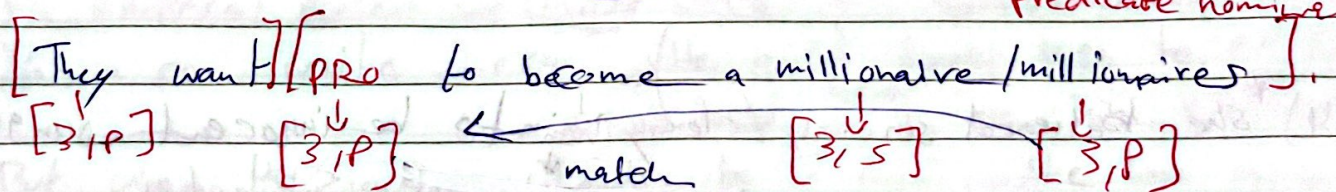 Predicate nomine
[They want] [PRO to become a millionaire / millionaires].
[3,P] [3,P] [3,S] [3,P]
match